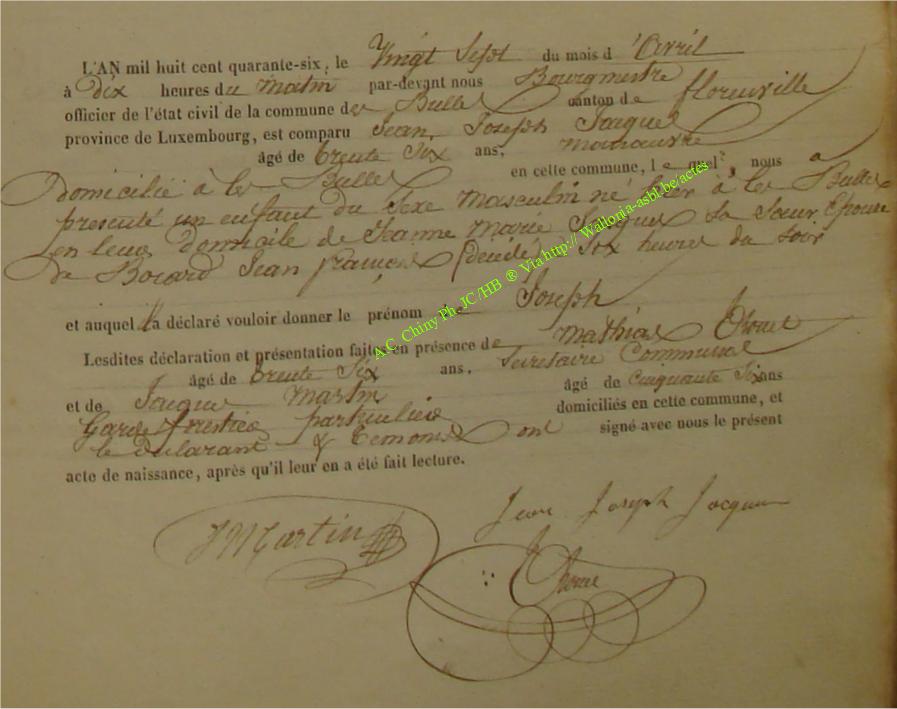 L'AN mil huit cent quarante-six, le Vingt Sept du mois d'Avril
à Dix heures du matin par-devant nous Bourgmestre
officier de l'état civil de la commune des Bulles canton de florenville
province de Luxembourg, est comparu Jean Joseph Jacques
âgé de trente Six ans, manœuvre
domicilié à les Bulles en cette commune, lequel, nous a
presenté un enfant du Sexe masculin né hier à les Bulles
en leur domicile de Jeanne Marie Jacques Sa Sœur Epouse
de Bocard Jean françois (decédé) Six heures du soir
et auquel il a déclaré vouloir donner le prénom de Joseph
Lesdites déclaration et présentation faites en présence de Mathias
âgé de trente Six ans, Secretaire Communal
et de Jacques Martin âgé de Cinquante Six ans
Garde forestier particulier domiciliés en cette commune, et
le declarant & temoins ont signé avec nous le présent
acte de naissance, après qu'il leur en a été fait lecture.
Jean Joseph Jacques
J Martin
A.C. Chiny Ph. JC /HB ® Via http:// Wallonia-asbl.be/actes